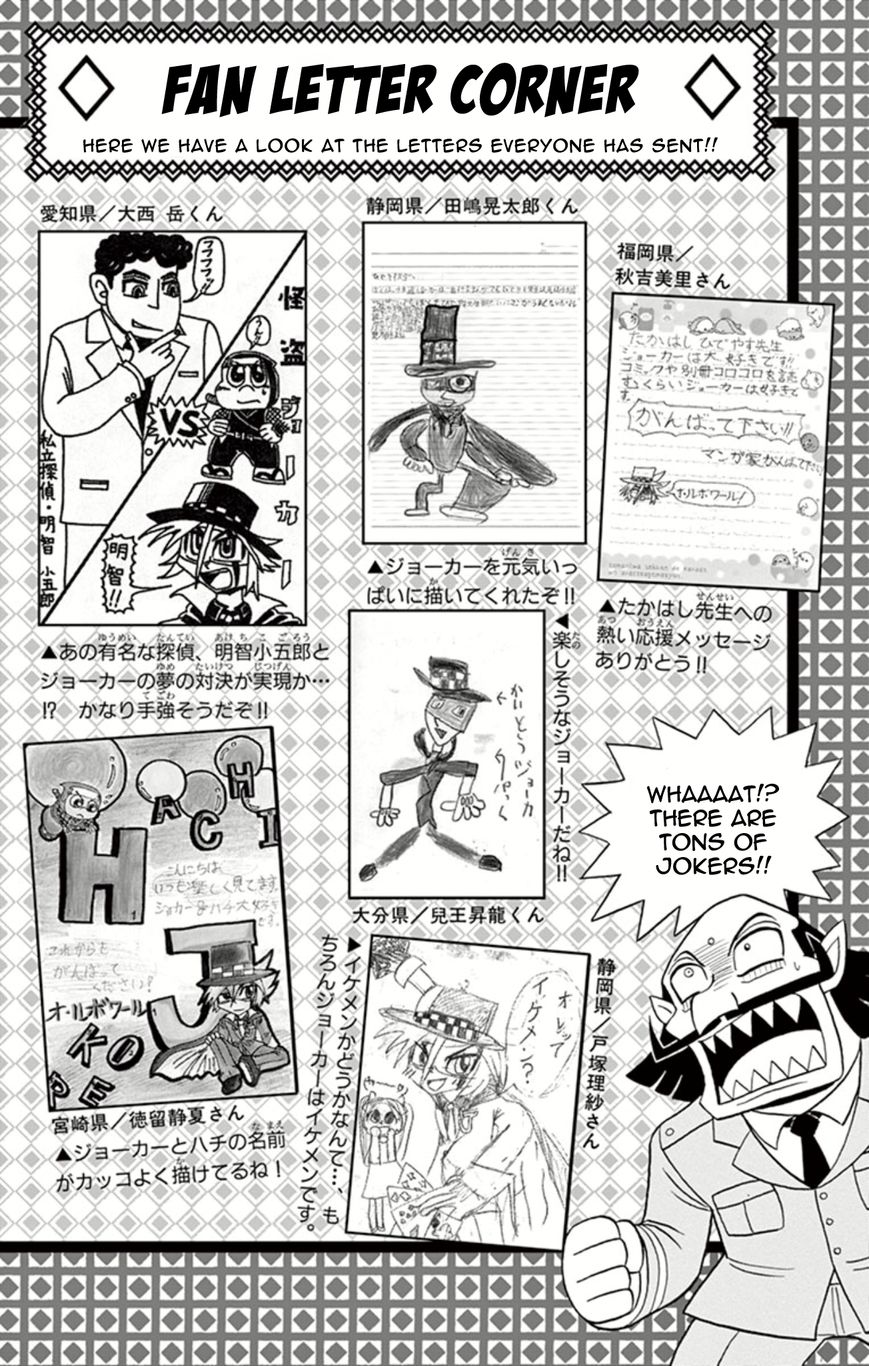 FAN LETTER CORNER
HERE WE HAVE A LOOK AT THE LETTERS EVERYONE HAS SENT!!
愛知県／大西 岳くん
フフフフッ
怪盗ジョーカー
VS
私立探偵・明智小五郎
明智!!
▲あの有名な探偵、明智小五郎と
ジョーカーの夢の対決が実現か…
!? かなり手強そうだぞ!!
静岡県／田嶋晃太郎くん
▲ジョーカーを元気いっ
ぱいに描いてくれたぞ!!
福岡県／
秋吉美里さん
たかはしひでやす先生
ジョーカーは大好きです!!
コミックや別冊コロコロを読
むくらいジョーカーは好きで
す。
がんばって下さい!!
マンガ家がんばて下さい
オ・ルボワール!
▲たかはし先生への
熱い応援メッセージ
ありがとう!!
▲楽しそうなジョーカーだね!!
かいとうジョーカー
大分県／兒王昇龍くん
WHAAAAT!?
THERE ARE
TONS OF
JOKERS!!
HACHI
こんにちは
いつも楽しく見てます。
ジョーカー&ハチ大好き
これからも
がんばって
ください!
オ・ルボワール
JOKER
宮崎県／徳留静夏さん
▲ジョーカーとハチの名前
がカッコよく描けてるね！
静岡県／戸塚理紗さん
オレって
イケメン?
▲イケメンかどうかなんて…、も
ちろんジョーカーはイケメンです。